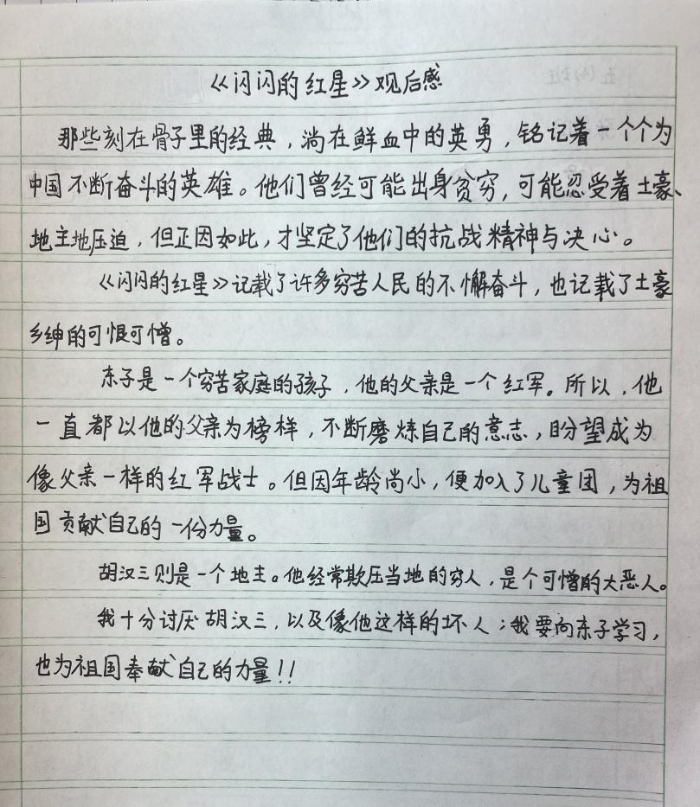 《闪闪的红星》观后感
那些刻在骨子里的经典，淌在鲜血中的英勇，铭记着一个个为
中国不断奋斗的英雄。他们曾经可能出身贫穷，可能忍受着土豪、
地主地压迫，但正因如此，才坚定了他们的抗战精神与决心。
《闪闪的红星》记载了许多穷苦人民的不懈奋斗，也记载了土豪
乡绅的可恨可憎。
东子是一个穷苦家庭的孩子，他的父亲是一个红军。所以，他
一直都以他的父亲为榜样，不断磨炼自己的意志，盼望成为
像父亲一样的红军战士。但因年龄尚小，便加入了儿童团，为祖
国贡献自己的一份力量。
胡汉三则是一个地主。他经常欺压当地的穷人，是个可憎的大恶人。
我十分讨厌胡汉三，以及像他这样的坏人；我要向东子学习，
也为祖国奉献自己的力量!!